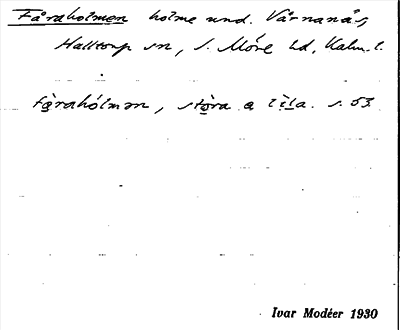 Fåraholmen holme und. Värnanäs,
Halltorp sn, S. Möre hd, Kalm. l.
fåraholmen, stora a lila. s. 53.
Ivar Modéer 1930